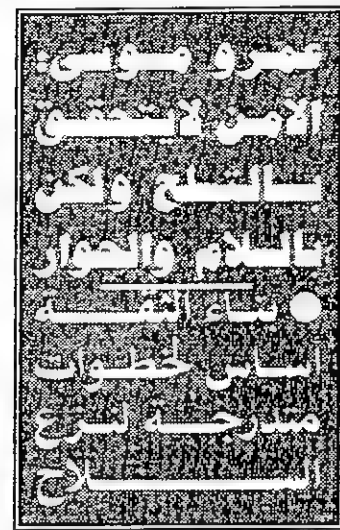 عمرو موسى:
الأمن لا يتحقق
بالتسلح ولكن
بالسلام والحوار
● بناء الثقة
أساس لخطوات
متدرجة لنزع
السلاح